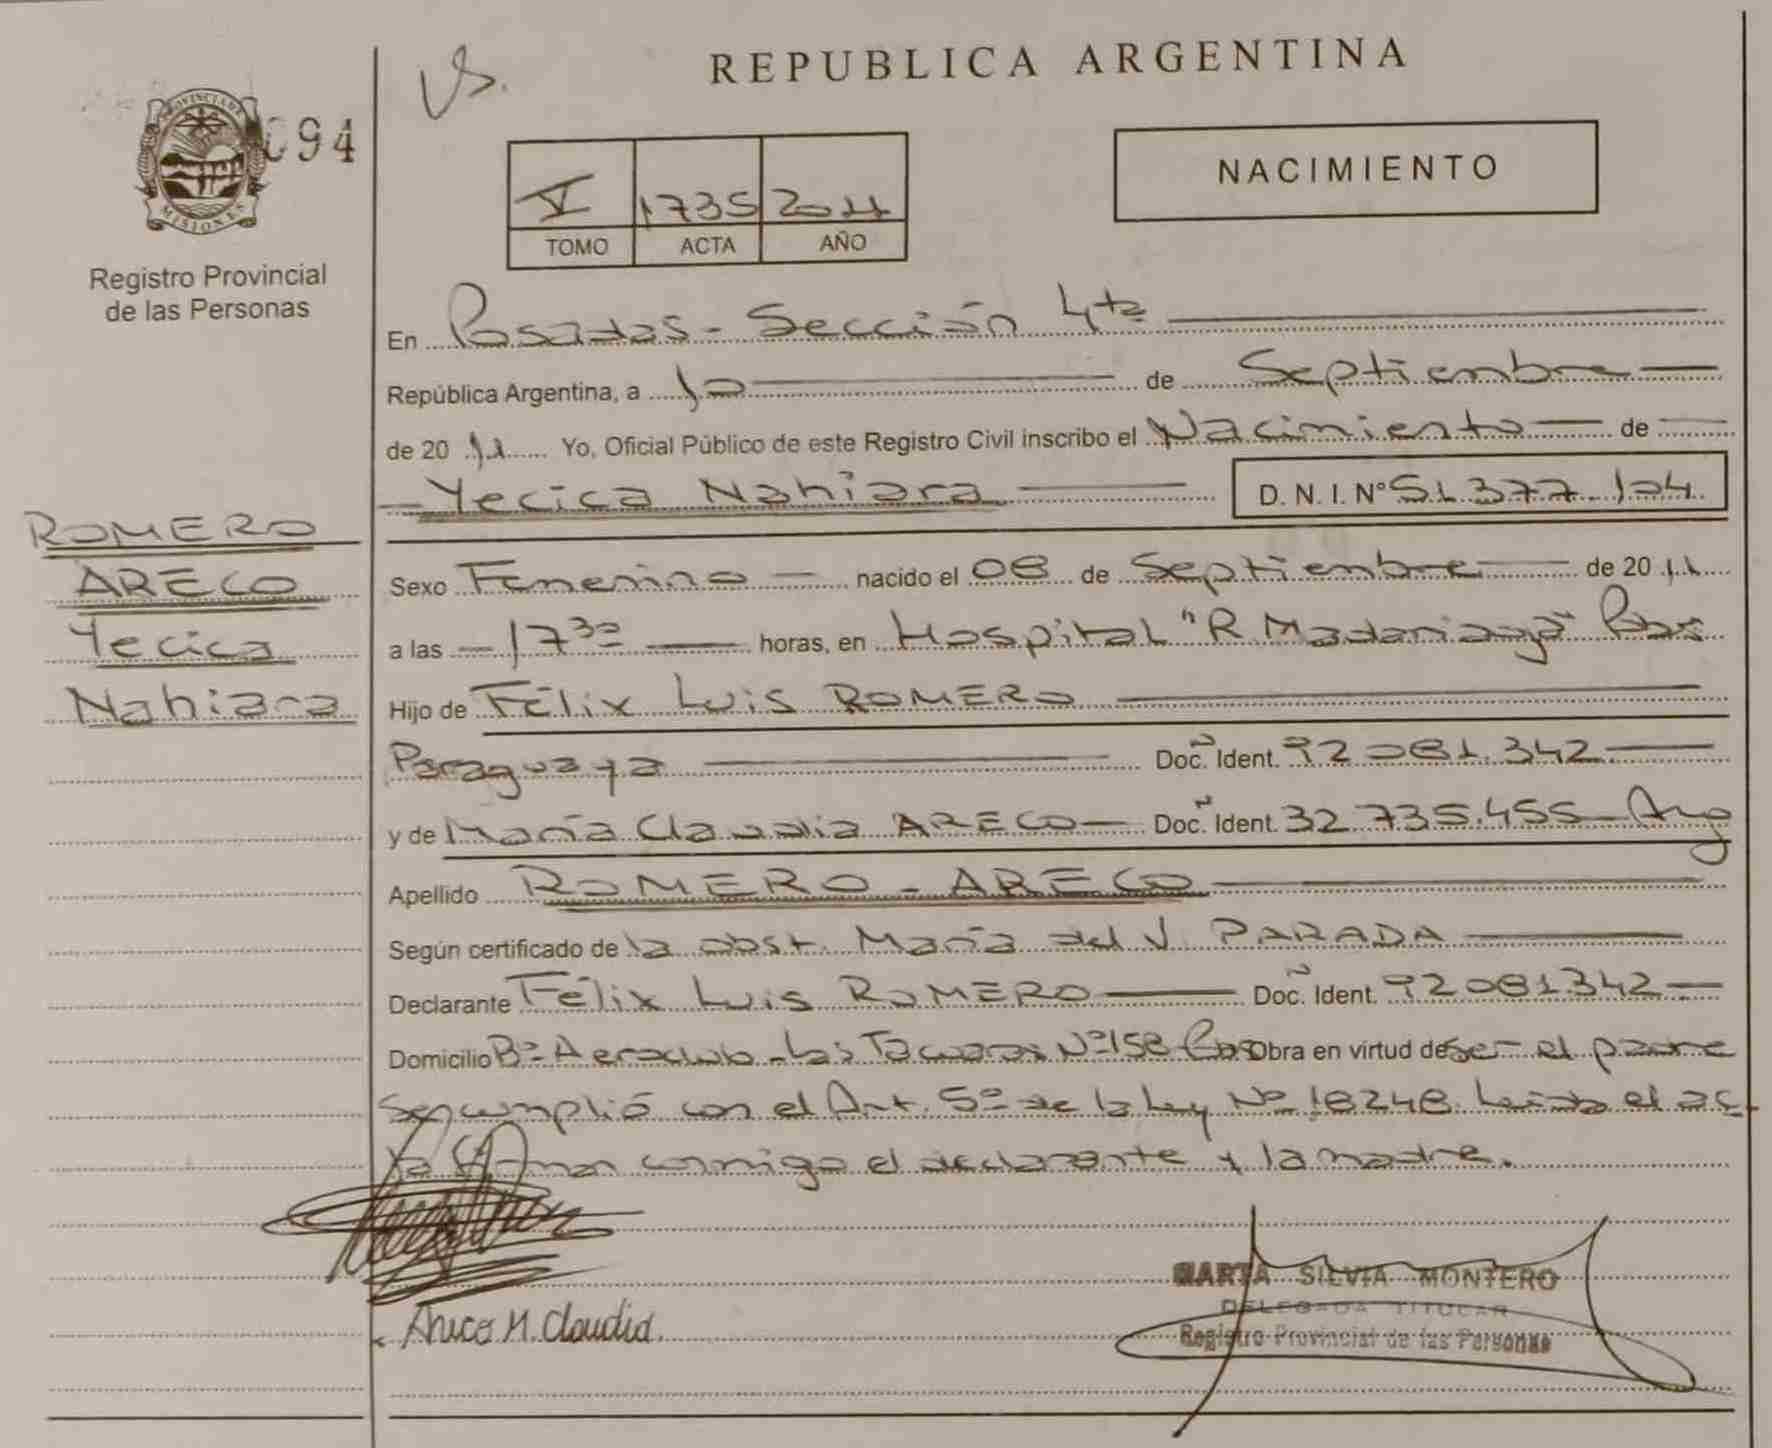 REPUBLICA ARGENTINA
PROVINCIA DE
MISIONES
094
Registro Provincial
de las Personas
V 1735 2011
TOMO ACTA AÑO
NACIMIENTO
En Posadas - Sección 4ta
República Argentina, a 10 de Septiembre
de 20 11 Yo, Oficial Público de este Registro Civil inscribo el Nacimiento de
Yecica Nahiara D. N. I. Nº 51.377.104
ROMERO
ARECO
Yecica
Nahiara
Sexo Femenino nacido el 08 de Septiembre de 20 11
a las 17 30 horas, en Hospital "R Madariaga" Pdas
Hijo de Félix Luis ROMERO
Paraguaya Doc. Ident. 92 081.342
y de María Claudia ARECO Doc. Ident. 32 735.455 - Arg
Apellido ROMERO - ARECO
Según certificado de la obst. María del V. PARADA
Declarante Félix Luis ROMERO Doc. Ident. 92 081342
Domicilio Bº Aeroclub - Las Tacuaras Nº 158 Pdas Obra en virtud de ser el padre
Se cumplió con el Art. 5º de la Ley Nº 18248. Leída el ac
ta firman conmigo el declarante y la madre.
MARTA SILVIA MONTERO
DELEGADA TITULAR
Registro Provincial de las Personas
Areco M. Claudia.